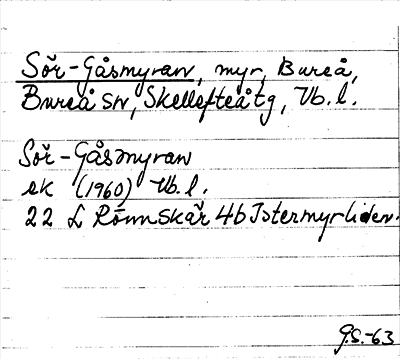 Sör-Gåsmyran, myr, Bureå,
Bureå sn, Skellefteå tg, Vb. l.
Sör-Gåsmyran
ek (1960) Vb. l.
22 L Rönnskär 4b Istermyrliden.
G.S.-63